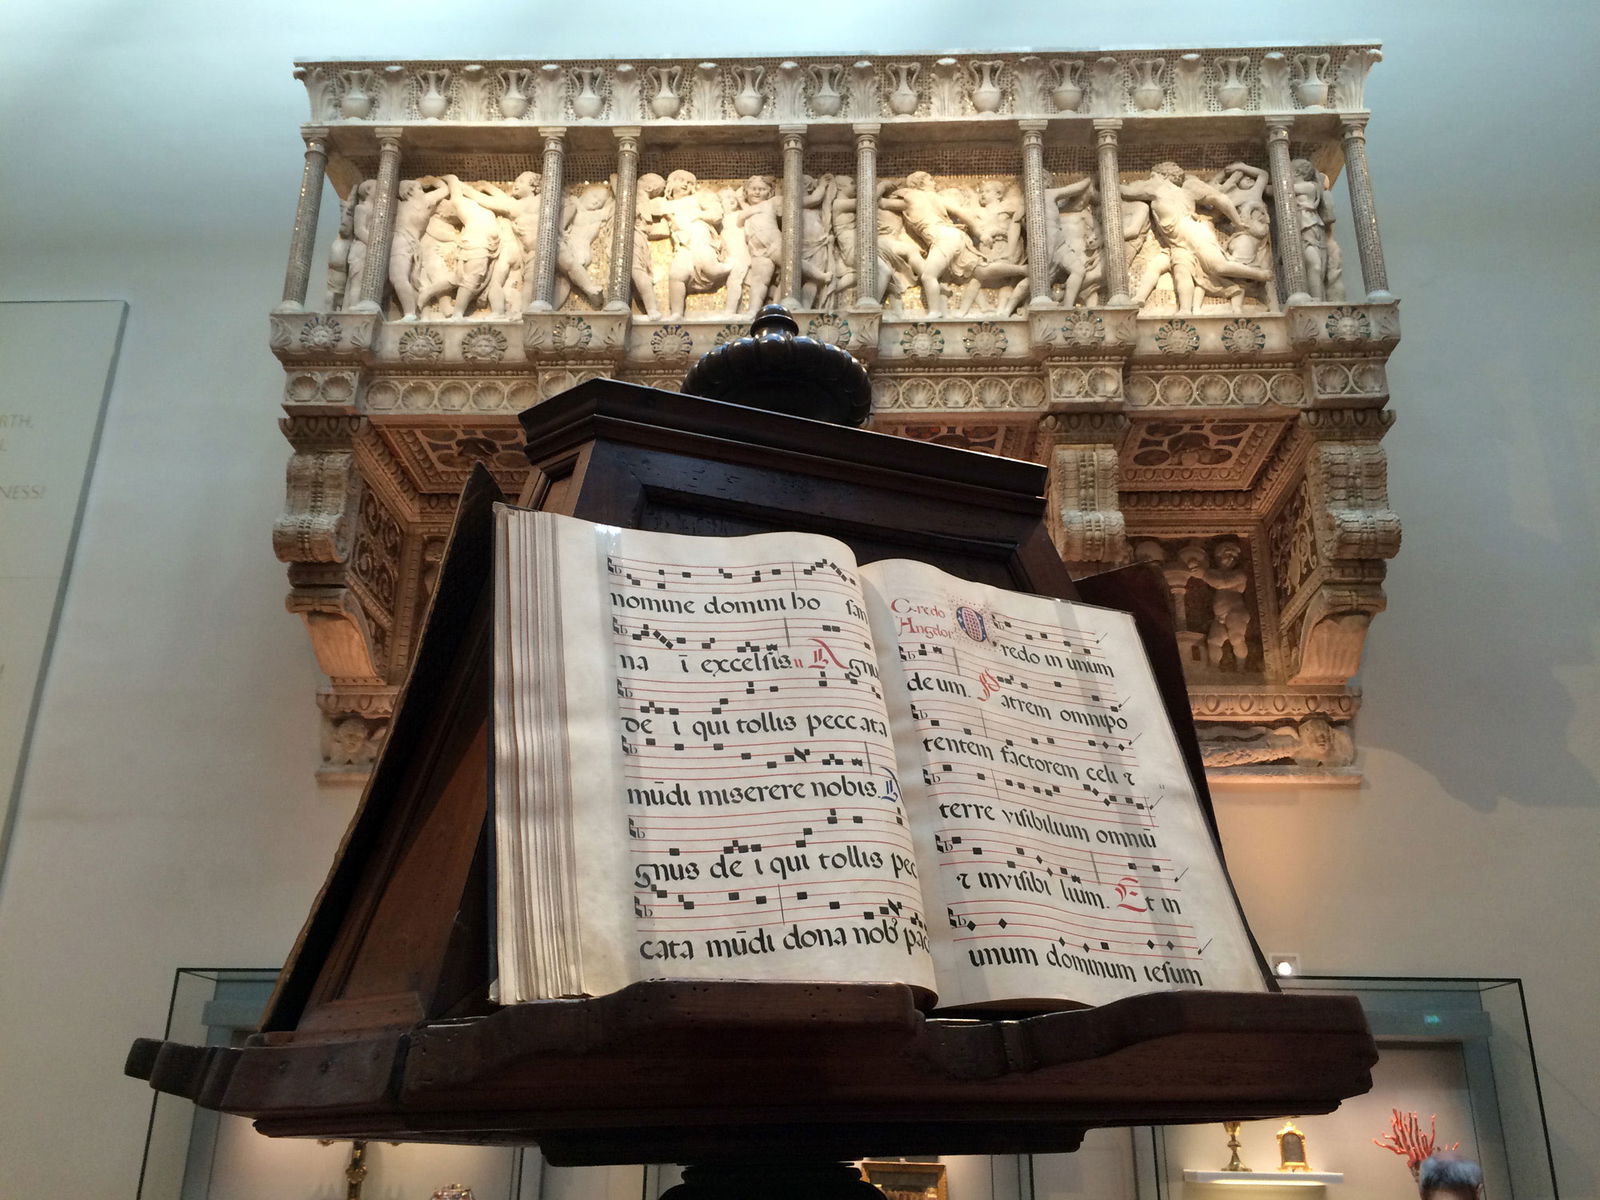 nomine domini ho san
na ī excelsis. Agnu
de i qui tollis pecc ata
mūdi miserere nobis. A
gnus de i qui tollis pec
cata mūdi dona nob pac
Credo
Angelor
Credo in unum
deum. Patrem omnipo
tentem factorem celi ⁊
terre visibilium omniū
⁊ invisibi lium. Et in
unum dominum iesum
RTH,
NESS?